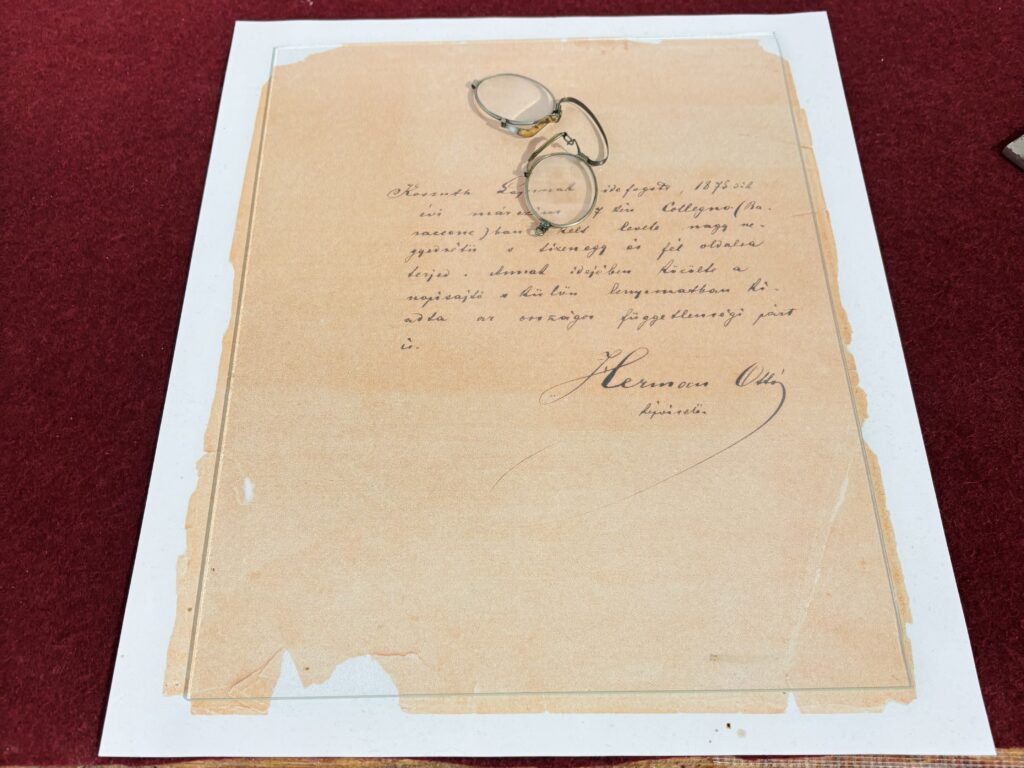 Kossuth Lajosnak ide fogott, 1875-ik
évi márczius 7 kén Collegno (Ba-
raccone)ban kelt levele nagy ne-
gyedrétü s tizenegy és fél oldalra
terjed. Annak idejében közölte a
napisajtó s külön lenyomatban ki-
adta az országos függetlenségi párt
is.
Herman Ottó
képviselő.